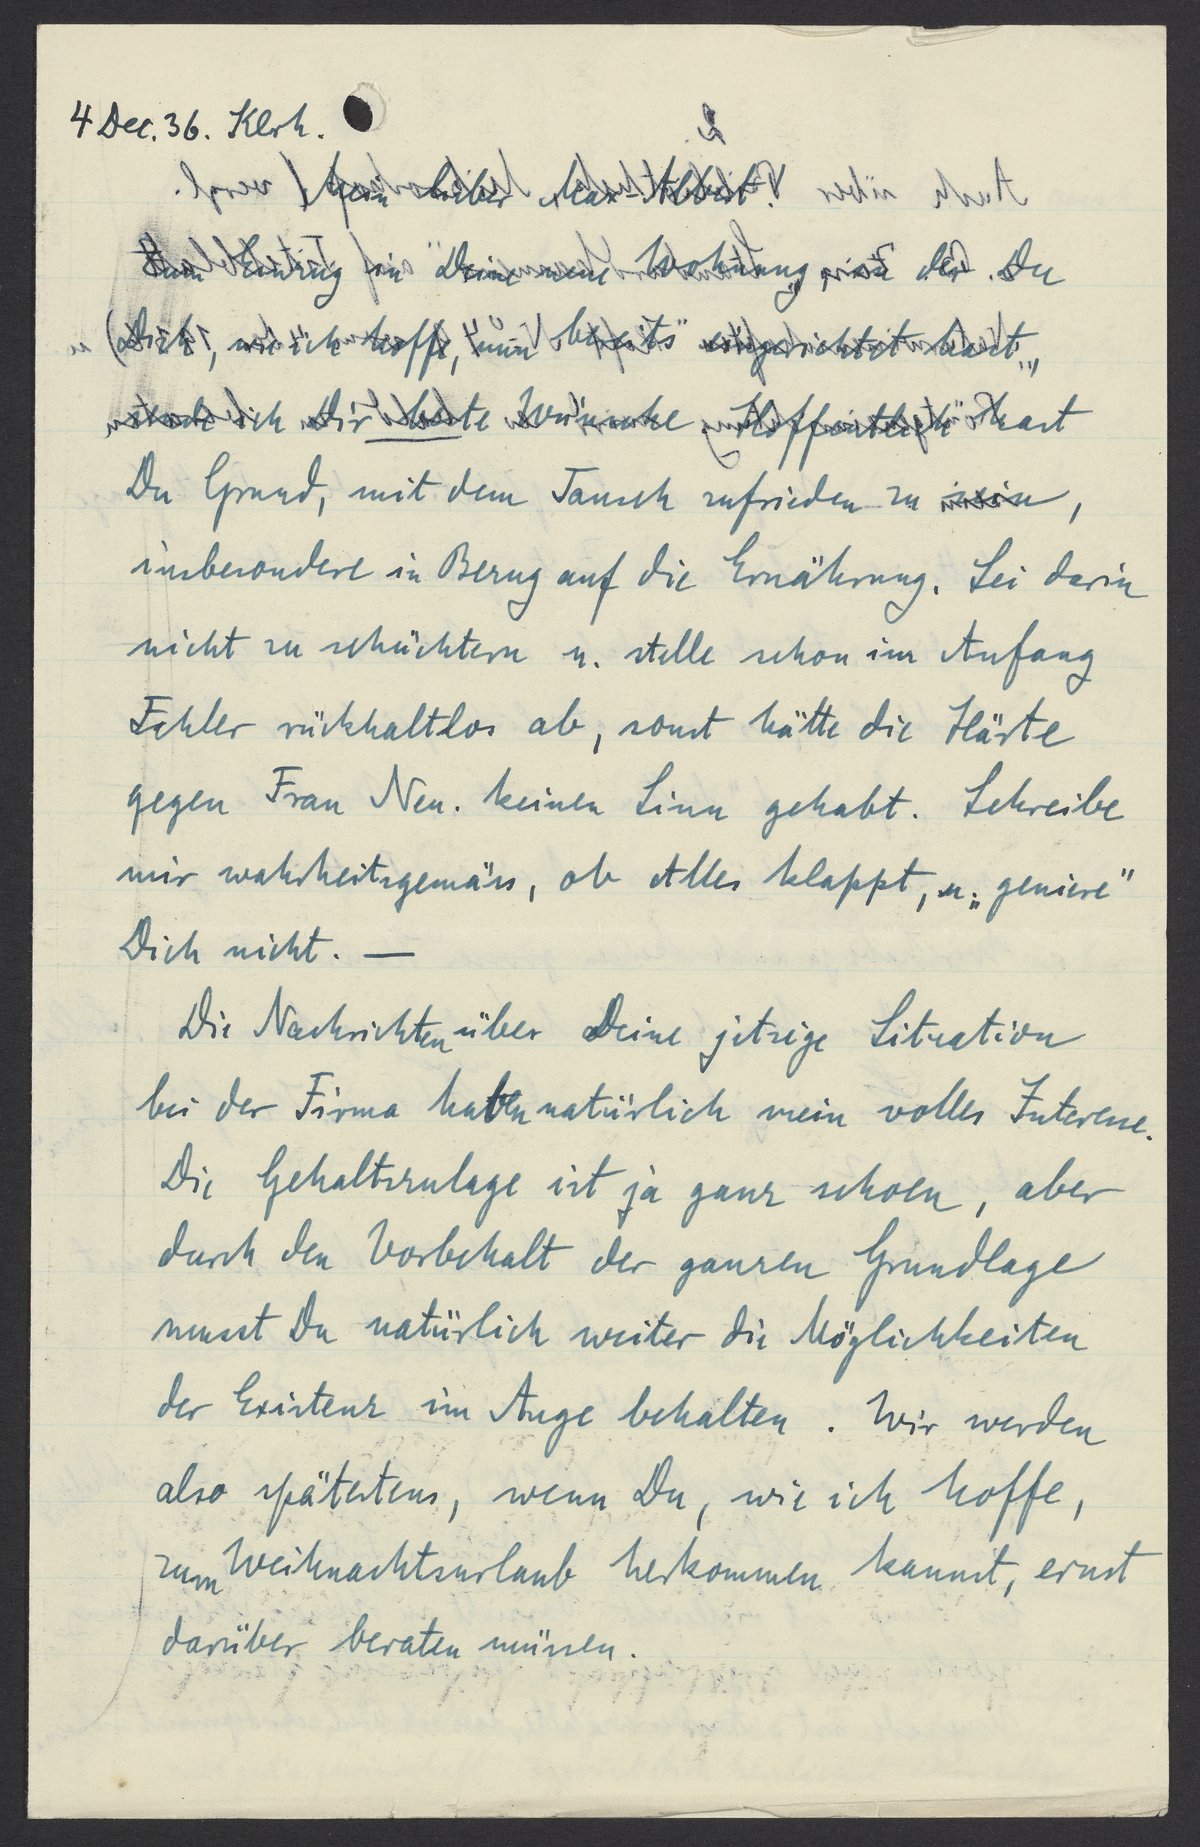 4 Dec. 36. Klrh.
Mein lieber Max-Albert!
Zum Einzug in Deine neue Wohnung, in der Du
Dich, wie ich hoffe, nun bereits eingerichtet hast,
sende ich Dir beste Wünsche. Hoffentlich hast
Du Grund, mit dem Tausch zufrieden zu sein,
insbesondere in Bezug auf die Ernährung. Sei darin
nicht zu schüchtern u. stelle schon im Anfang
Fehler rückhaltlos ab, sonst hätte die Härte
gegen Frau Neu. keinen Sinn gehabt. Schreibe
mir wahrheitsgemäss, ob Alles klappt, u. „geniere"
Dich nicht. —
Die Nachrichten über Deine jetzige Situation
bei der Firma haben natürlich mein volles Interesse.
Die Gehaltszulage ist ja ganz schoen, aber
durch den Vorbehalt der ganzen Grundlage
musst Du natürlich weiter die Möglichkeiten
der Existenz im Auge behalten. Wir werden
also spätestens, wenn Du, wie ich hoffe,
zum Weihnachtsurlaub herkommen kannst, ernst
darüber beraten müssen.